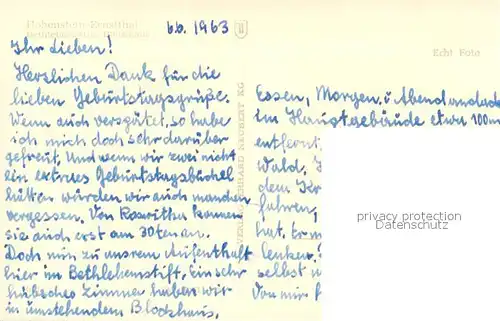 Hohenstein-Ernstthal
6.6.1963
Echt Foto
Ihr Lieben!
Herzlichen Dank für die
lieben Geburtstagsgrüße.
Wenn auch verspätet, so habe
ich mich doch sehr darüber
gefreut. Und wenn wir zwei nicht
ein extraes Geburtstagsbüchel
hätten würden wir auch manchen
vergessen. Von Roswitha kamen
sie auch erst am 30ten an.
Doch nun zu unsrem Aufenthalt
hier im Bethlehemstift. Ein sehr
hübsches Zimmer haben wir
in umstehendem Blockhaus,
Essen, Morgen- u Abendandacht
im Hauptgebäude etwa 100m
entfernt,
Wald,
dem Kr
fahren,
hat. Er m
lenken.
selbst
Von mir
GERHARD NEUBERT KG
privacy protection
Datenschutz